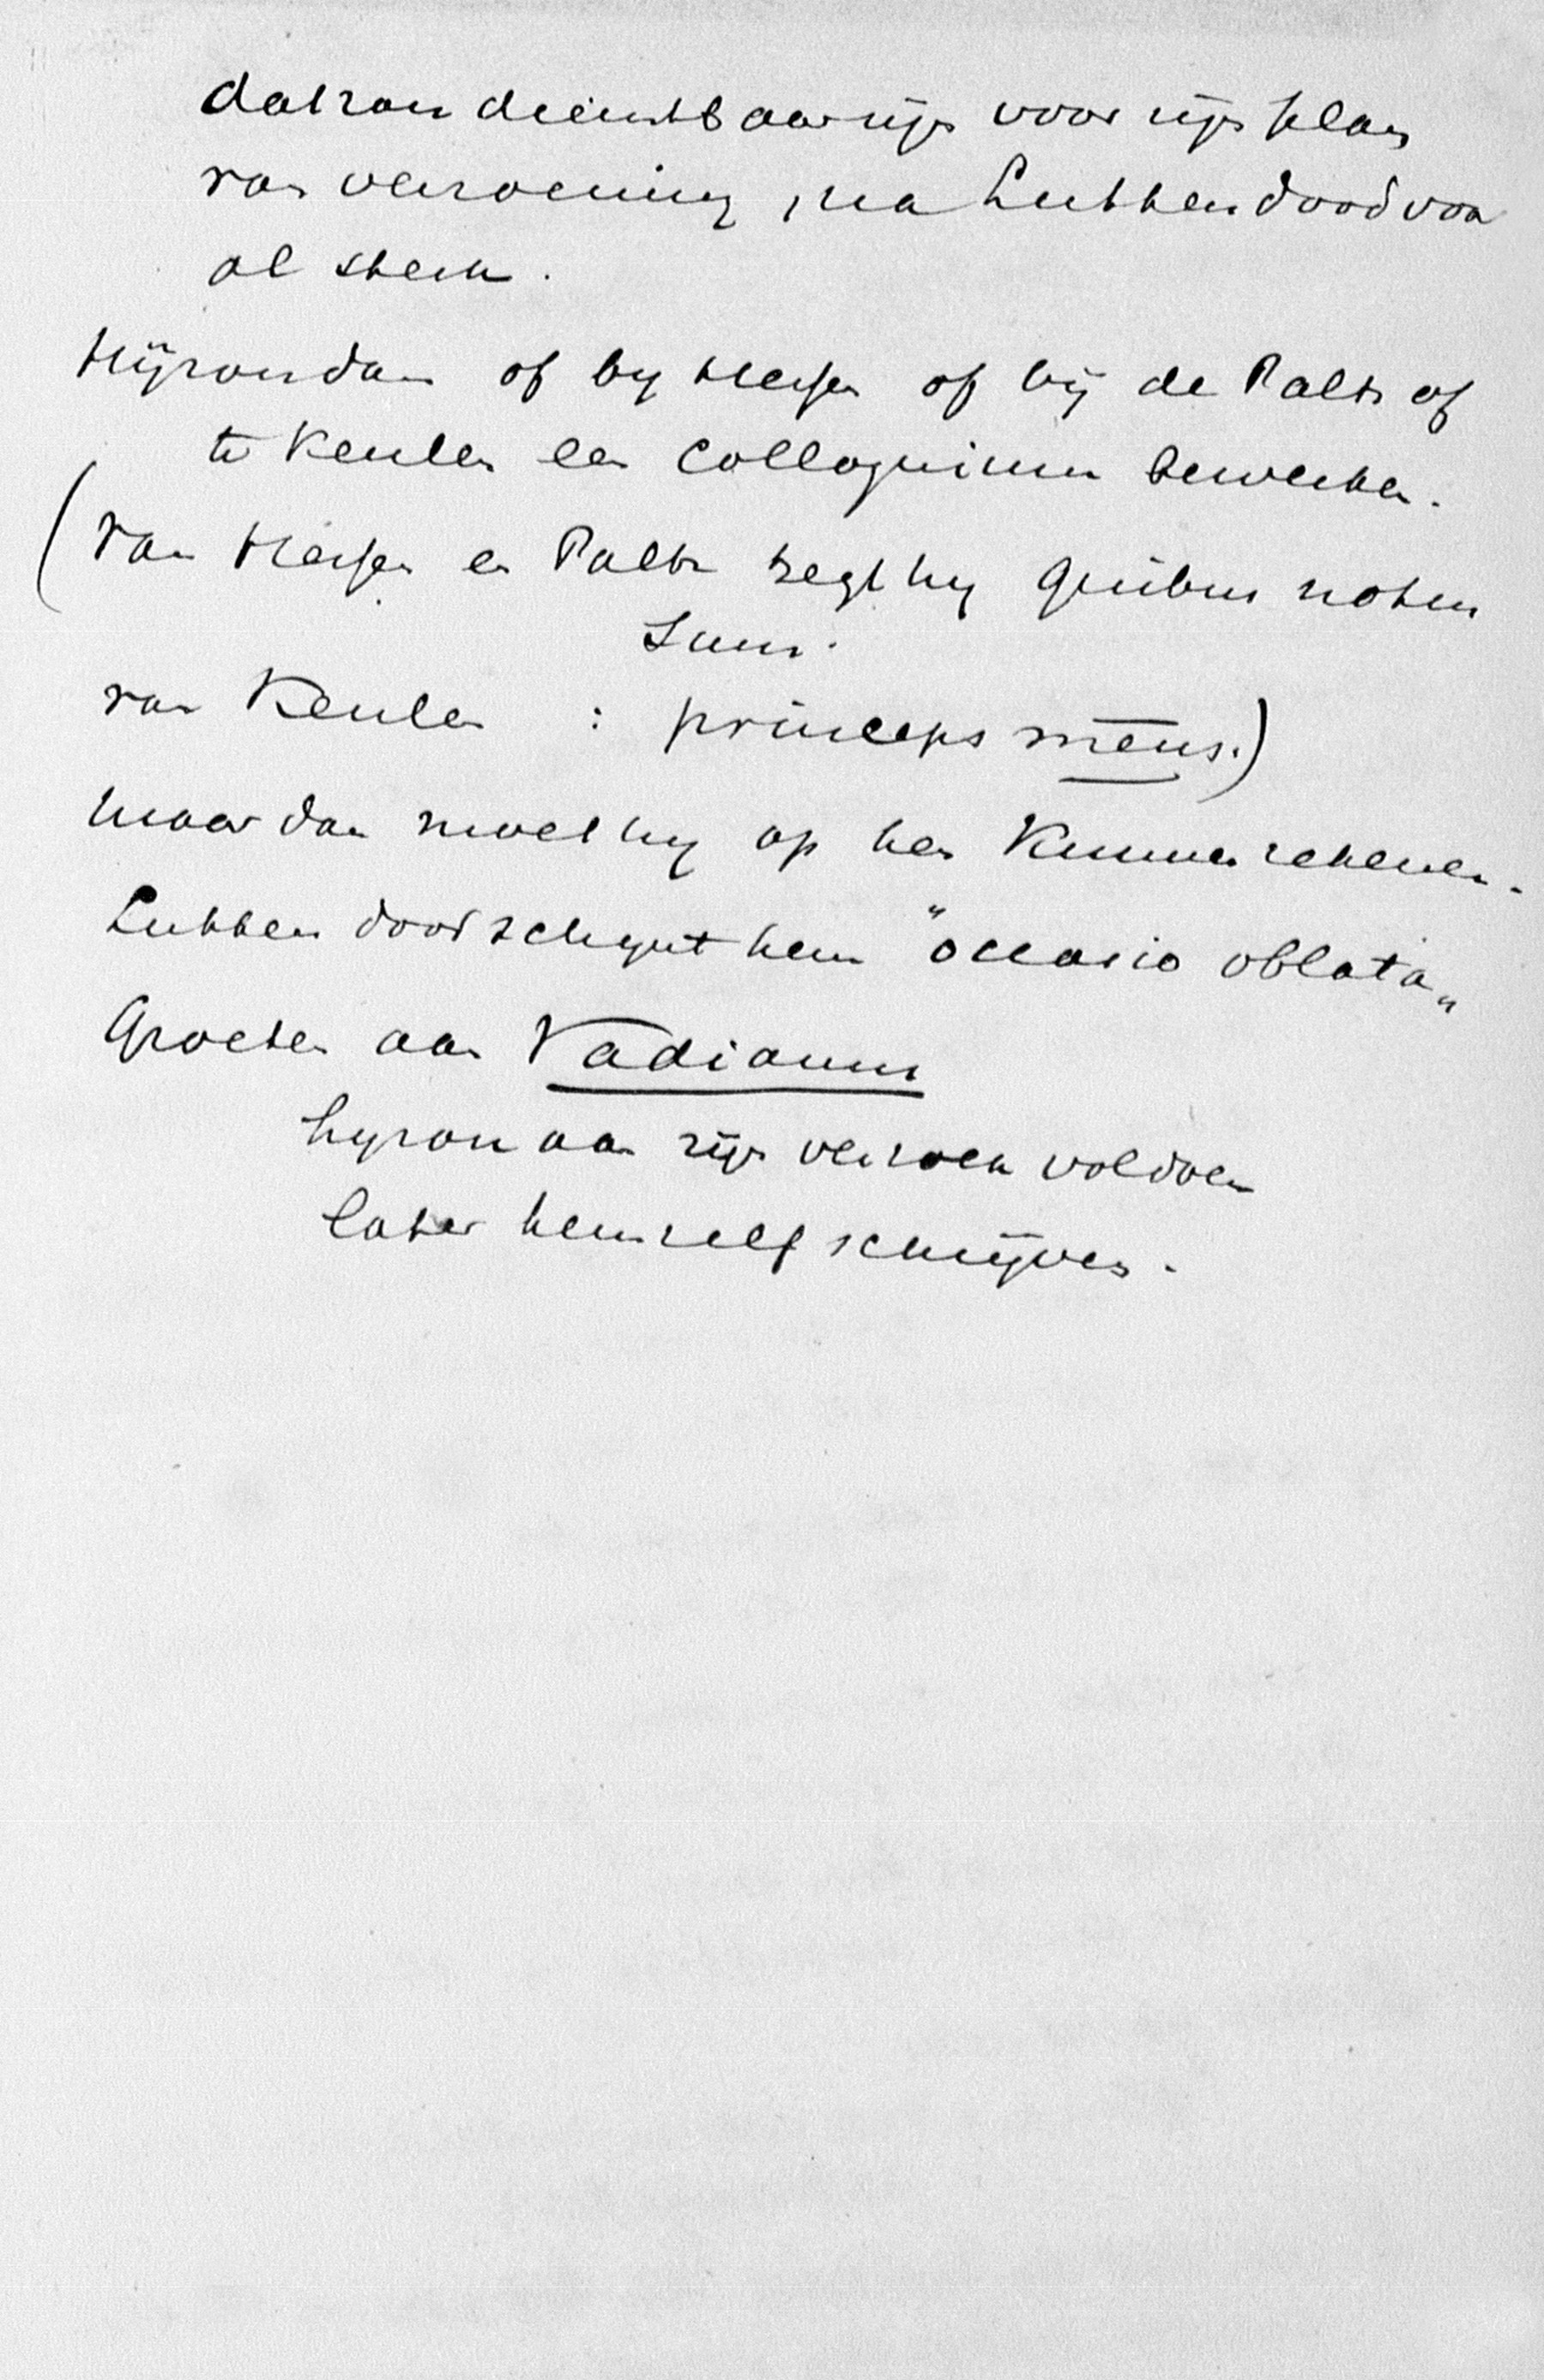 dat zou dienstbaar zijn voor zijn plan
van verzoening, na Luthers dood voor
al sterk.
Hij zou dan of by Hessen of bij de Palts of
te Keulen een Colloquium bewerken.
(Van Hessen en Palts zegt hy quibus notus
sum.
van Keulen : princeps meus.)
Maar dan moet hy op hen kunnen rekenen.
Luthers dood schynt hem "occasio oblata"
Groeten aan Vadianus
hy zou aan zijn verzoek voldoen
later hemzelf schrijven.